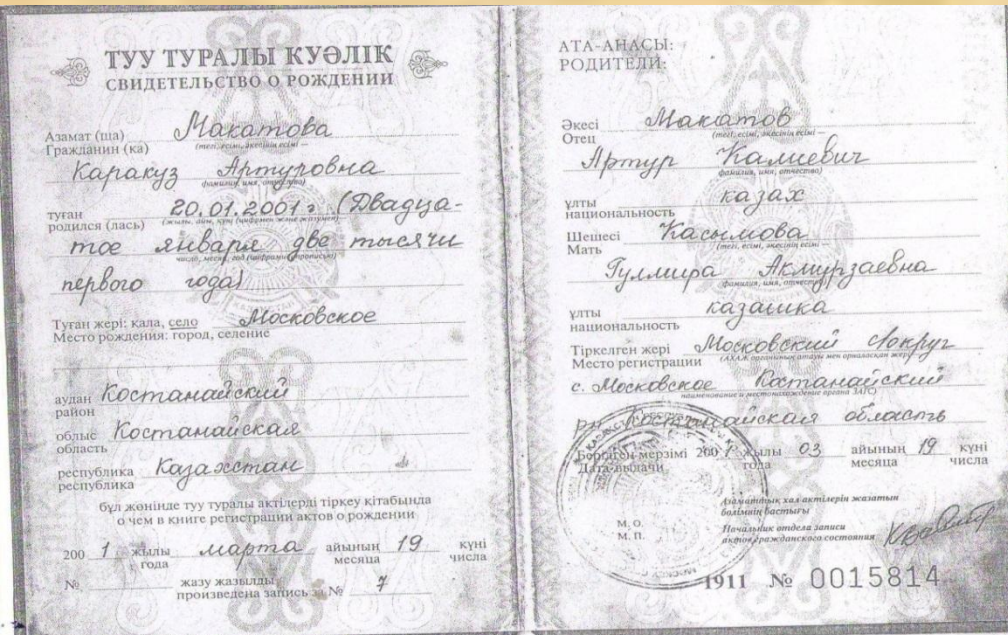 ТУУ ТУРАЛЫ КУӘЛІК
СВИДЕТЕЛЬСТВО О РОЖДЕНИИ
Азамат (ша) Макатова
Гражданин (ка) (тегі, есімі, әкесінің есімі —
Каракуз Артуровна
фамилия, имя, отчество)
туған 20.01.2001 г (Двадца-
родился (лась) (жылы, айы, күні (цифрмен және жазумен)
тое января две тысячи
число, месяц, год (цифрами и прописью)
первого года)
Туған жері: қала, село Московское
Место рождения: город, селение
аудан Костанайский
район
облыс Костанайская
область
республика Казахстан
республика
бұл жөнінде туу туралы актілерді тіркеу кітабында
о чем в книге регистрации актов о рождении
200 1 жылы марта айының 19 күні
года месяца числа
№ жазу жазылды
произведена запись за № 7
АТА-АНАСЫ:
РОДИТЕЛИ:
Әкесі Макатов
Отец (тегі, есімі, әкесінің есімі —
Артур Калиевич
фамилия, имя, отчество)
ұлты казах
национальность
Шешесі Касымова
Мать (тегі, есімі, әкесінің есімі —
Гулмира Акмурзаевна
фамилия, имя, отчество)
ұлты казашка
национальность
Тіркелген жері Московский округ
Место регистрации (АХАЖ органының атауы мен орналасқан жері)
с. Московское Костанайский
наименование и местонахождение органа ЗАГС
Костанайская область
Берілген мерзімі 200 1 жылы 03 айының 19 күні
Дата выдачи года месяца числа
Азаматтық хал актілерін жазатын
бөлімнің бастығы
М. О.
М. П.
Начальник отдела записи
актов гражданского состояния
1911 № 0015814